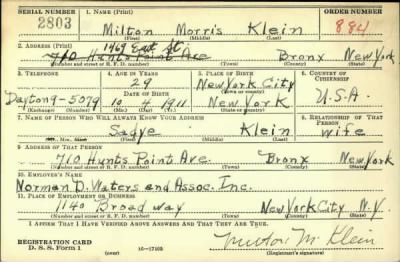 SERIAL NUMBER 1. NAME (Print) ORDER NUMBER
2803 Milton Morris Klein 884
(First) (Middle) (Last)
2. ADDRESS (Print) 1969 East St
710 Hunts Point Ave Bronx New York
(Number and street or R. F. D. number) (Town) (County) (State)
3. TELEPHONE 4. AGE IN YEARS 5. PLACE OF BIRTH 6. COUNTRY OF CITIZENSHIP
29 New York City
DATE OF BIRTH (Town or county)
Dayton 9-5079 10 4 1911 New York U.S.A.
(Exchange) (Number) (Mo.) (Day) (Yr.) (State or country)
7. NAME OF PERSON WHO WILL ALWAYS KNOW YOUR ADDRESS 8. RELATIONSHIP OF THAT PERSON
Sadye Klein wife
(Mr., Mrs., Miss) (First) (Middle) (Last)
9. ADDRESS OF THAT PERSON
710 Hunts Point Ave. Bronx New York
(Number and street or R. F. D. number) (Town) (County) (State)
10. EMPLOYER'S NAME
Norman D. Waters and Assoc. Inc.
11. PLACE OF EMPLOYMENT OR BUSINESS
1140 Broadway New York City N.Y.
(Number and street or R. F. D. number) (Town) (County) (State)
I AFFIRM THAT I HAVE VERIFIED ABOVE ANSWERS AND THAT THEY ARE TRUE.
REGISTRATION CARD
D. S. S. Form 1 (over) 16-17105 Milton M. Klein
(Registrant's signature)